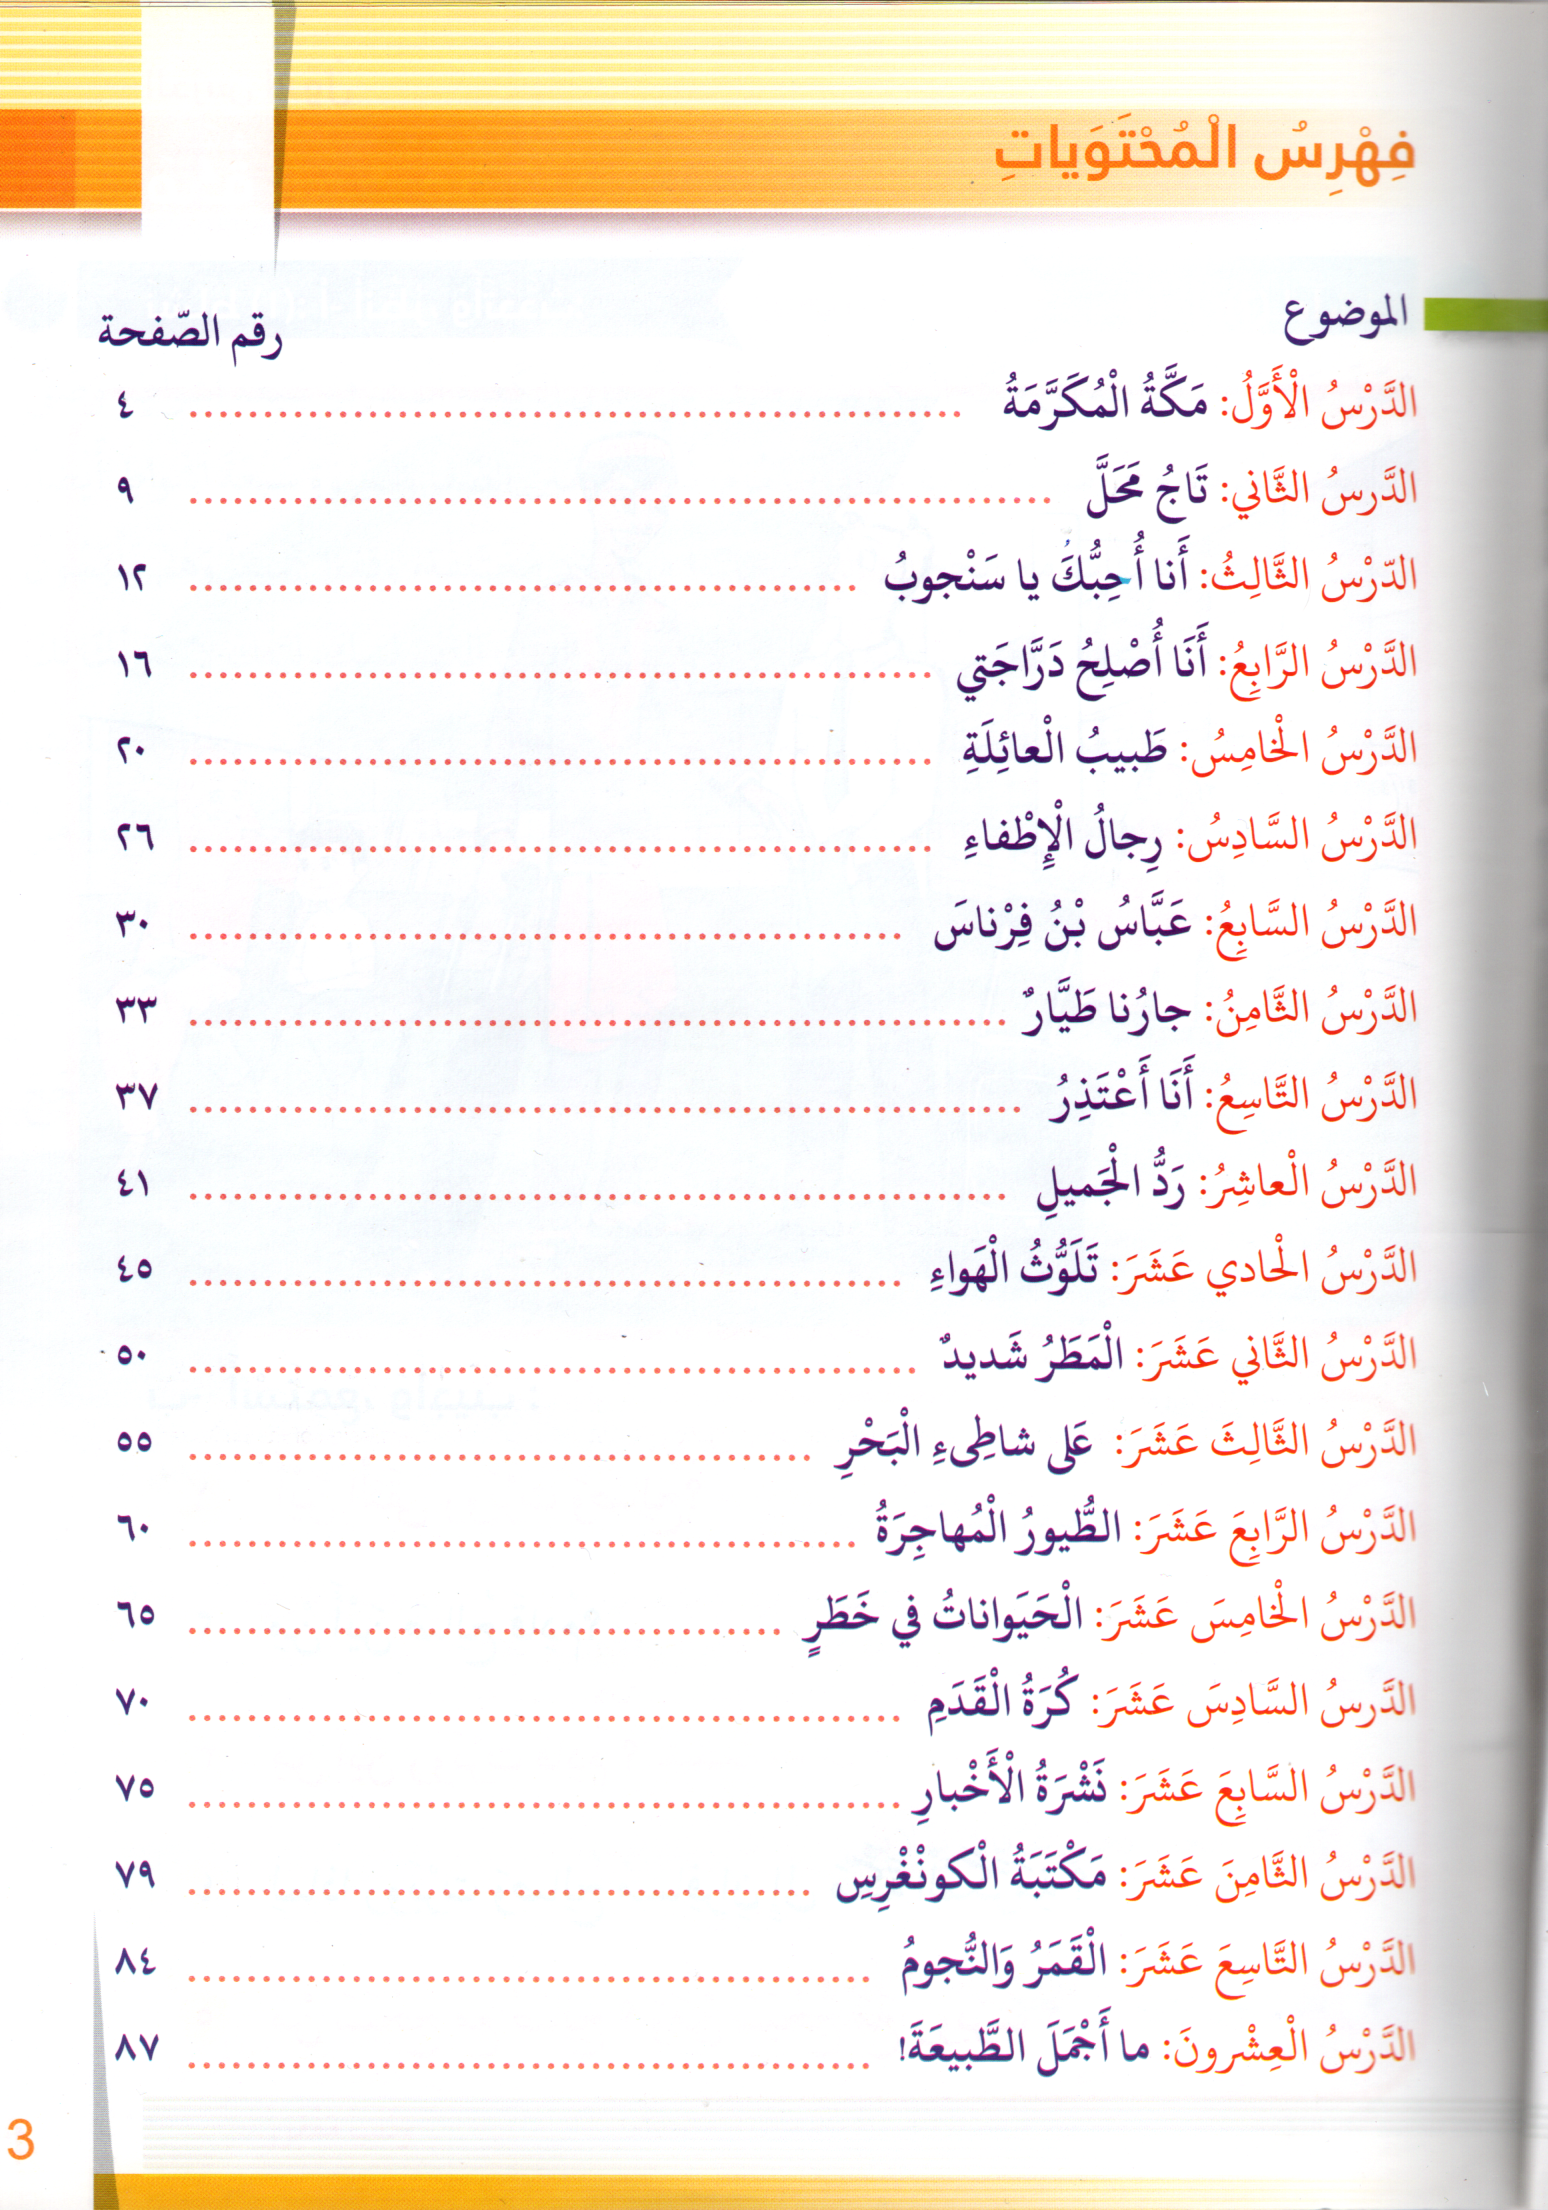 فِهْرِسُ الْمُحْتَوَياتِ
الموضوع رقم الصّفحة
الدَّرْسُ الْأَوَّلُ: مَكَّةُ الْمُكَرَّمَةُ ٤
الدَّرسُ الثَّاني: تَاجُ مَحَلَّ ٩
الدّرْسُ الثَّالِثُ: أَنا أُحِبُّكَ يا سَنْجوبُ ١٢
الدَّرْسُ الرَّابِعُ: أَنَا أُصْلِحُ دَرَّاجَتي ١٦
الدَّرْسُ الْخامِسُ: طَبيبُ الْعائِلَةِ ٢٠
الدَّرْسُ السَّادِسُ: رِجالُ الْإِطْفاءِ ٢٦
الدَّرْسُ السَّابِعُ: عَبَّاسُ بْنُ فِرْناسَ ٣٠
الدَّرْسُ الثَّامِنُ: جارُنا طَيَّارٌ ٣٣
الدَّرْسُ التَّاسِعُ: أَنَا أَعْتَذِرُ ٣٧
الدَّرْسُ الْعاشِرُ: رَدُّ الْجَميلِ ٤١
الدَّرْسُ الْحادي عَشَرَ: تَلَوُّثُ الْهَواءِ ٤٥
الدَّرْسُ الثَّاني عَشَرَ: الْمَطَرُ شَديدٌ ٥٠
الدَّرْسُ الثَّالِثَ عَشَرَ: عَلى شاطِىءِ الْبَحْرِ ٥٥
الدَّرْسُ الرَّابِعَ عَشَرَ: الطُّيورُ الْمُهاجِرَةُ ٦٠
الدَّرْسُ الْخامِسَ عَشَرَ: الْحَيَواناتُ في خَطَرٍ ٦٥
الدَّرسُ السَّادِسَ عَشَرَ: كُرَةُ الْقَدَمِ ٧٠
الدَّرْسُ السَّابِعَ عَشَرَ: نَشْرَةُ الْأَخْبارِ ٧٥
الدَّرْسُ الثَّامِنَ عَشَرَ: مَكْتَبَةُ الْكونْغْرِسِ ٧٩
الدَّرْسُ التَّاسِعَ عَشَرَ: الْقَمَرُ وَالنُّجومُ ٨٤
الدَّرْسُ الْعِشْرونَ: ما أَجْمَلَ الطَّبيعَةَ! ٨٧
3